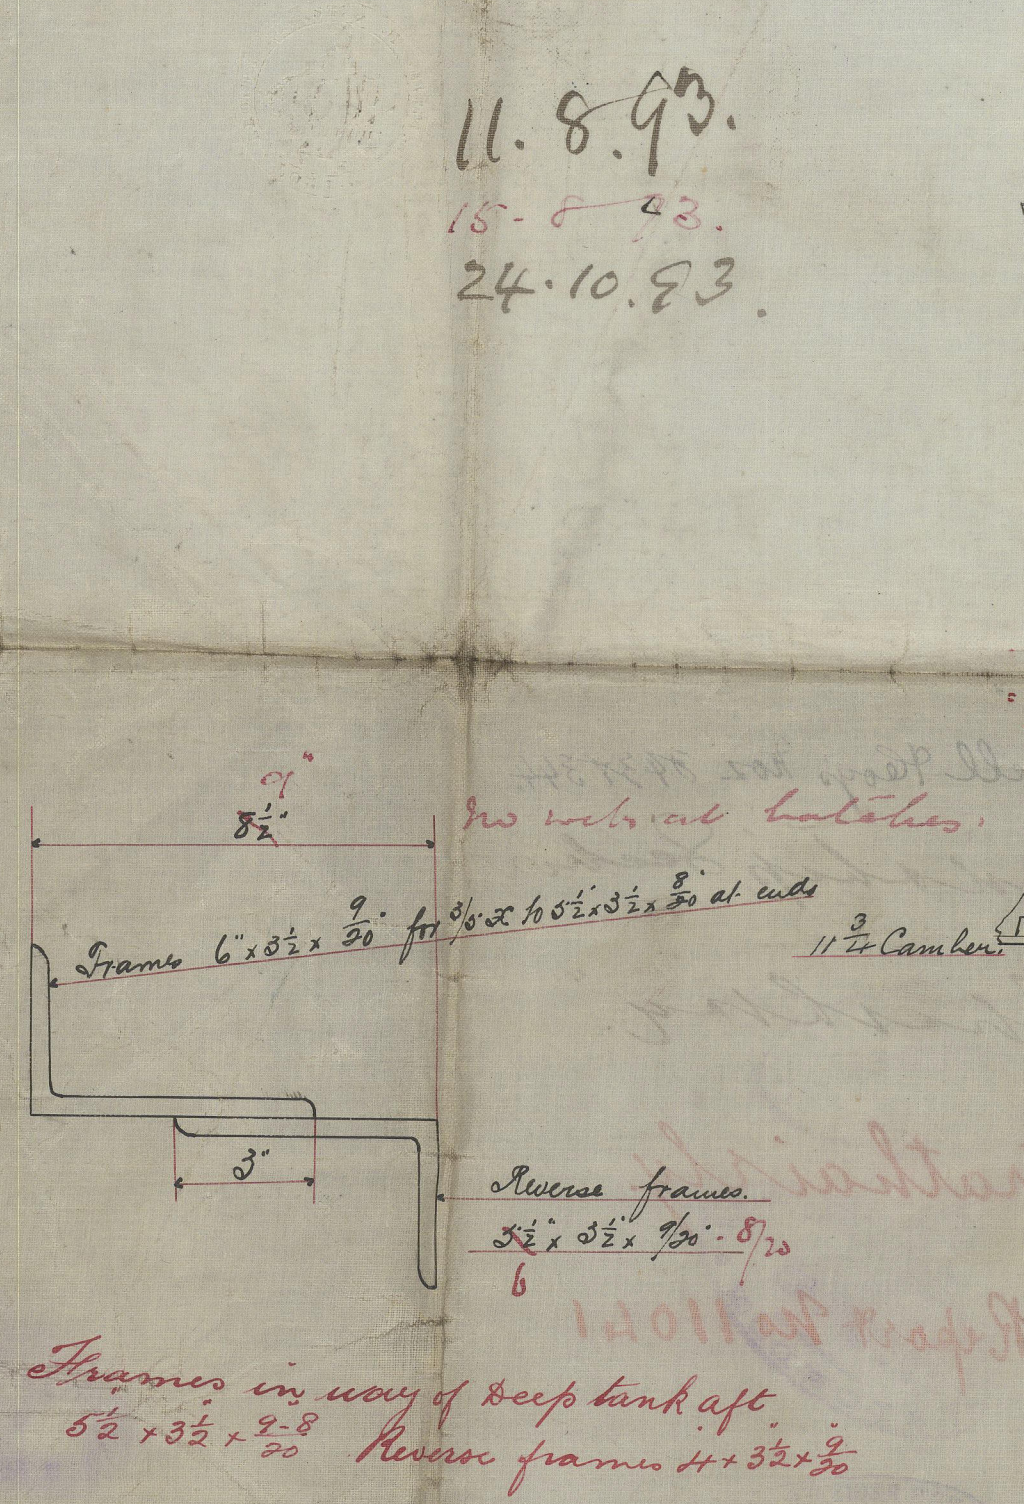 11.8.93.
15-8-93.
24.10.93.
9"
8½"
No webs at hatches.
Frames 6" x 3½ x 9/20" for 3/5 L to 5½" x 3½ x 8/20" at ends
11¾ Camber.
3"
Reverse frames.
5½" x 3½" x 9/20" - 8/20
6
Frames in way of Deep tank aft
5½" x 3½" x 9-8/20" Reverse frames 4" x 3½" x 9/20"
Report No 11041